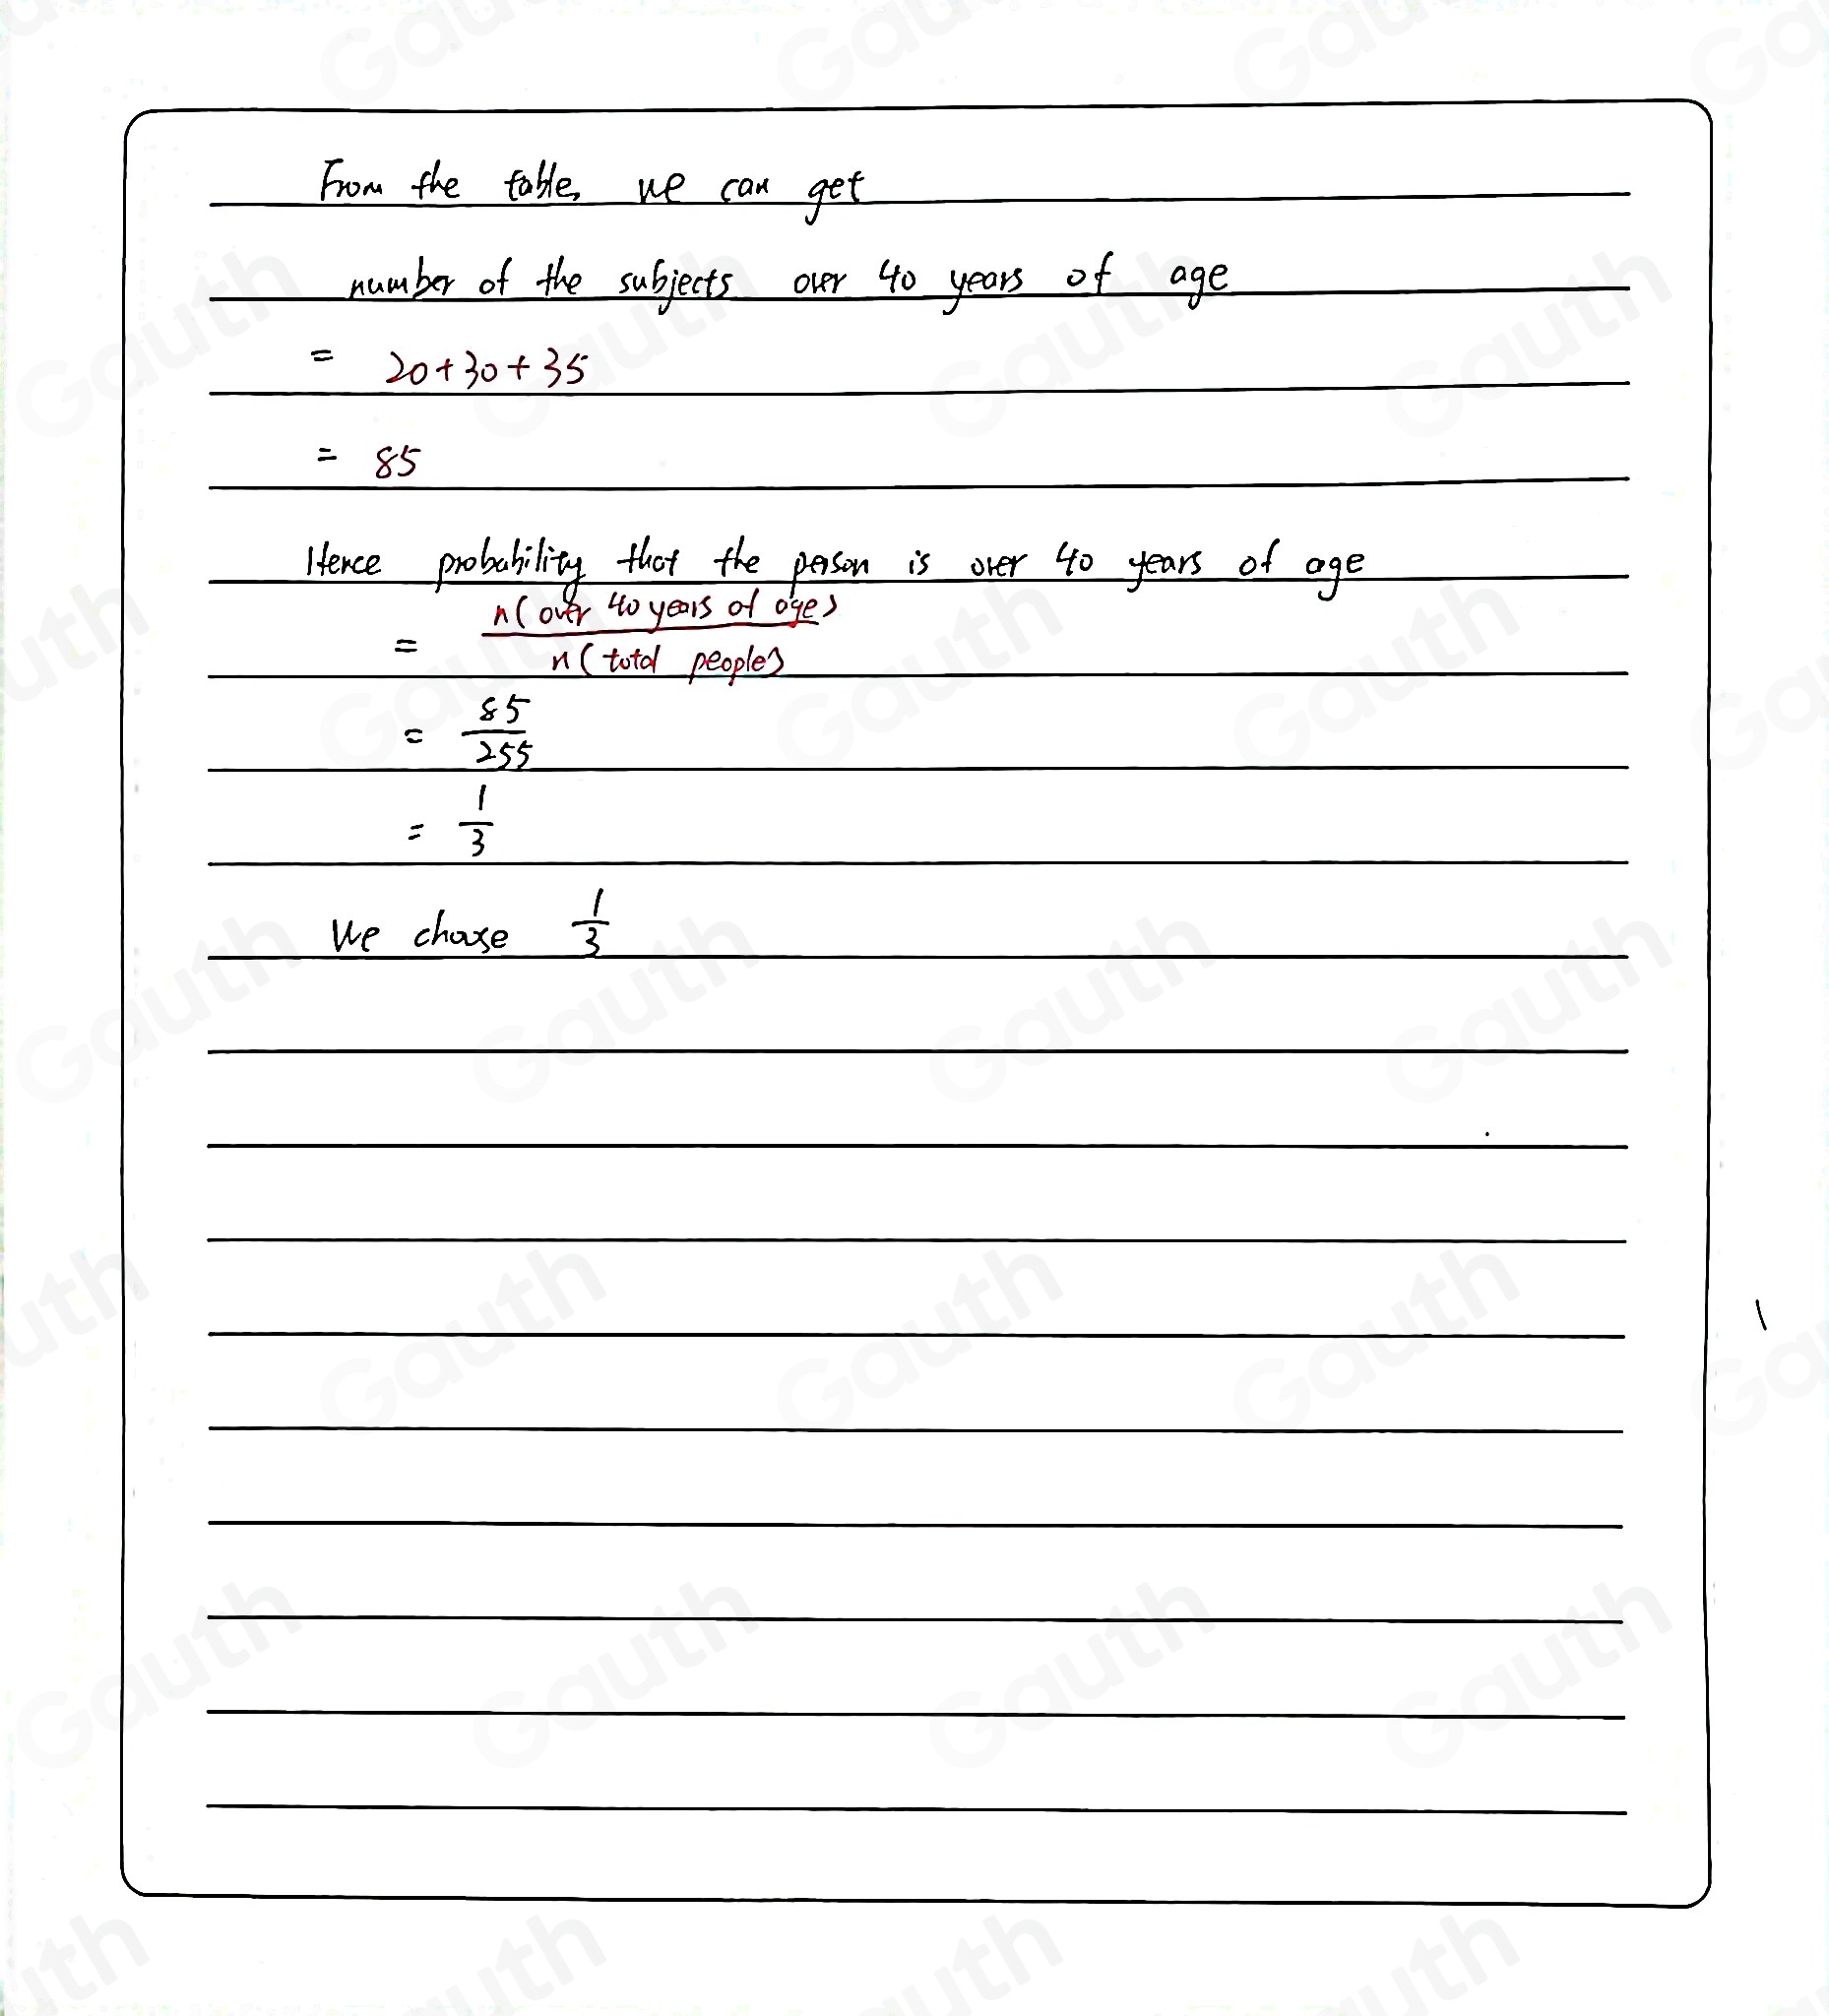 From the table, we can get
number of the subjects over 40 years of age
= 20+30+35
= 85
Hence probability that the person is over 40 years of age
= n(over 40 years of age) / n(total people)
= 85/255
= 1/3
We choose 1/3